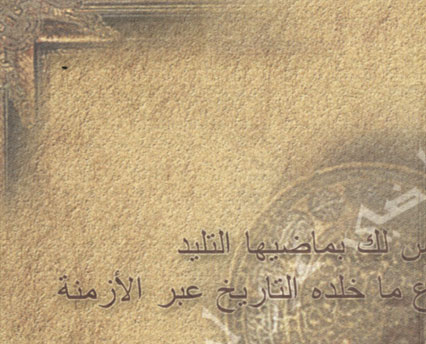 لك بماضيها التليد
ما خلده التاريخ عبر الأزمنة